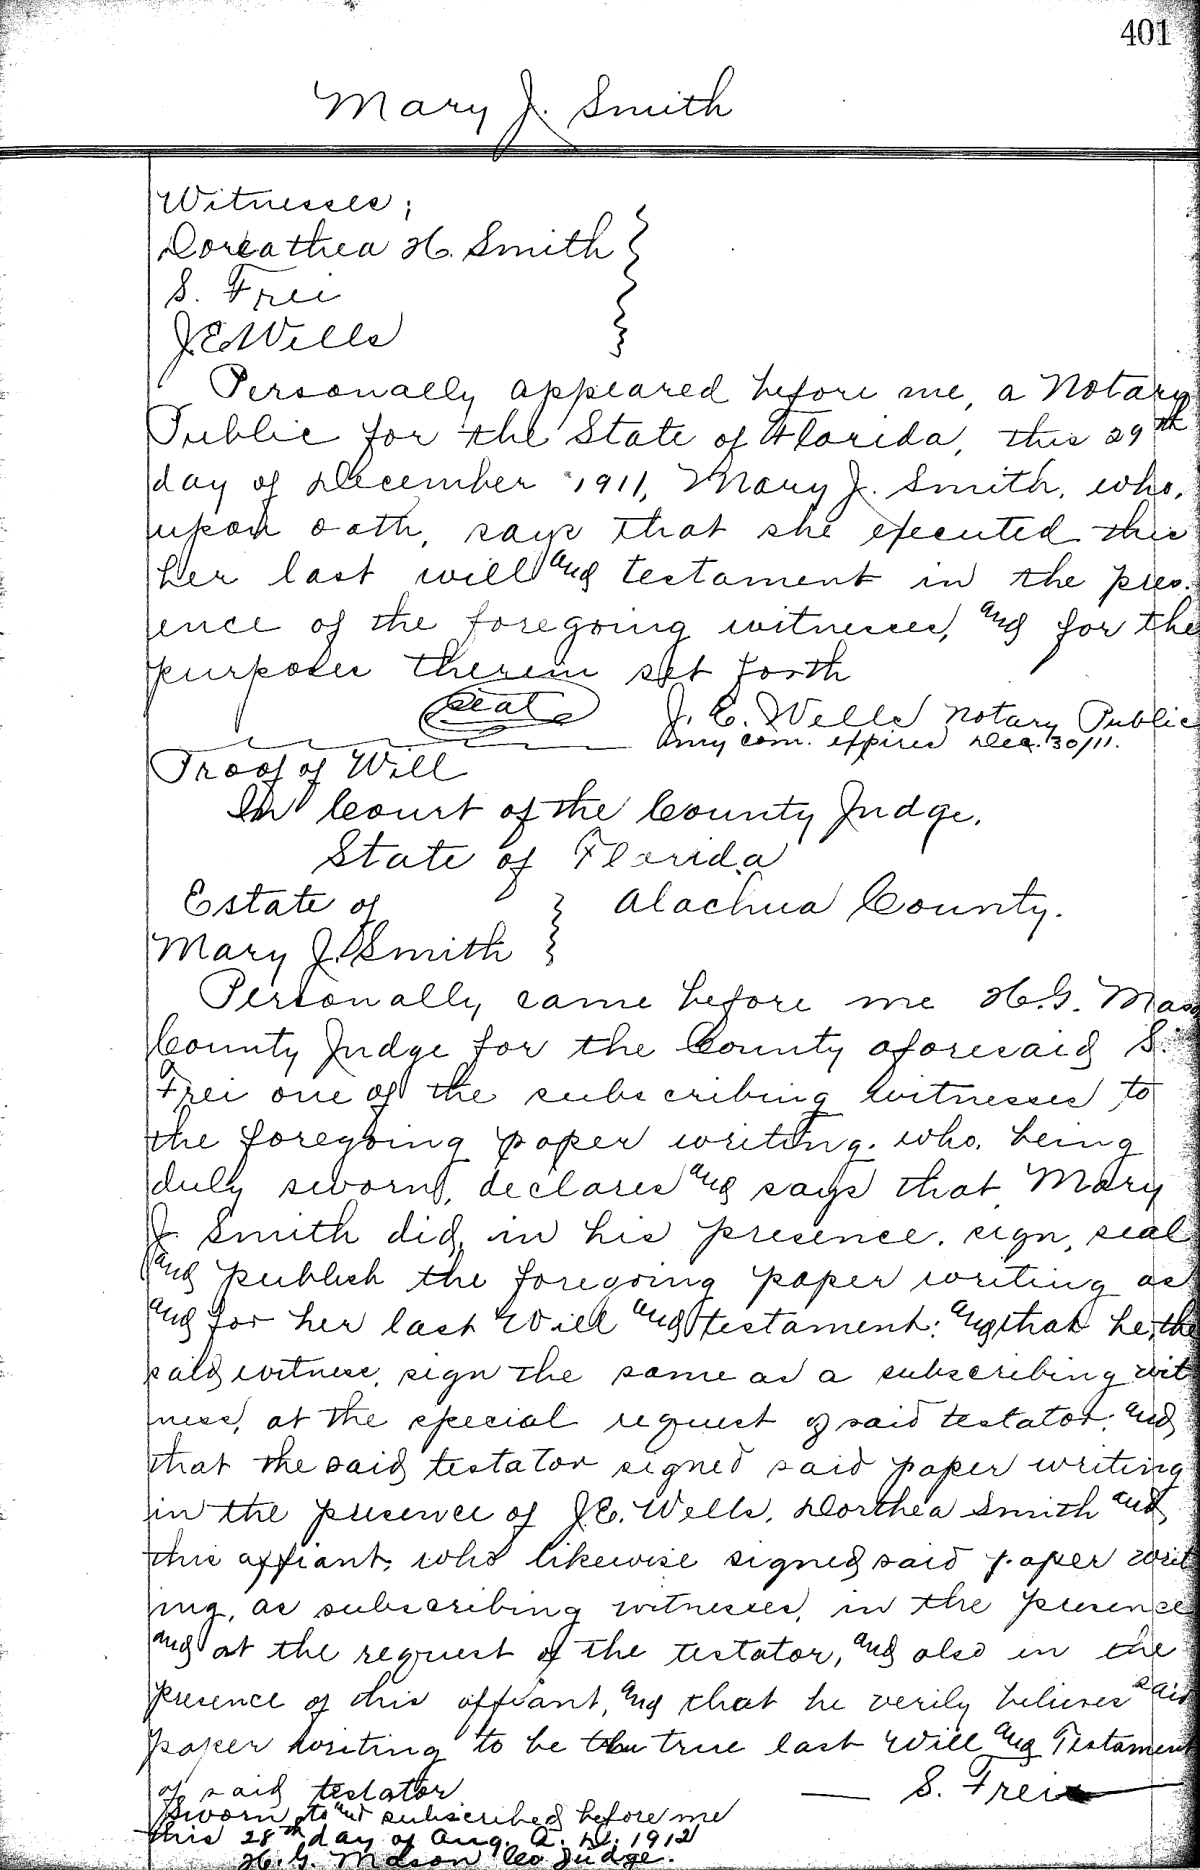 401
Mary J. Smith
Witnesses;
Doreathea H. Smith
S. Frei
J.E. Wells
Personally appeared before me, a Notary
Public for the State of Florida, this 29th
day of December 1911, Mary J. Smith, who,
upon oath, says that she executed this
her last will and testament in the pres-
ence of the foregoing witnesses, and for the
purposes therein set forth
Seal J. E. Wells Notary Public
my com. expires Dec. 30/11.
Proof of Will
In Court of the County Judge,
State of Florida
Estate of } Alachua County.
Mary J. Smith
Personally came before me H.G. Mason
County Judge for the County aforesaid S.
Frei one of the subscribing witnesses to
the foregoing paper writing. who, being
duly sworn, declares and says that Mary
J Smith did, in his presence, sign, seal
and publish the foregoing paper writing as
and for her last Will and testament; and that he, the
said witness, sign the same as a subscribing wit
ness, at the special request of said testator; and
that the said testator signed said paper writing
in the presence of J.E. Wells, Dorthea Smith and
this affiant; who likewise signed said paper writ
ing, as subscribing witnesses, in the presence
and at the request of the testator, and also in the
presence of this affiant, and that he verily believes said
paper writing to be the true last Will and Testament
of said testator S. Frei
Sworn to and subscribed before me
this 28th day of Aug. A. D. 1912
H. G. Mason Co Judge.